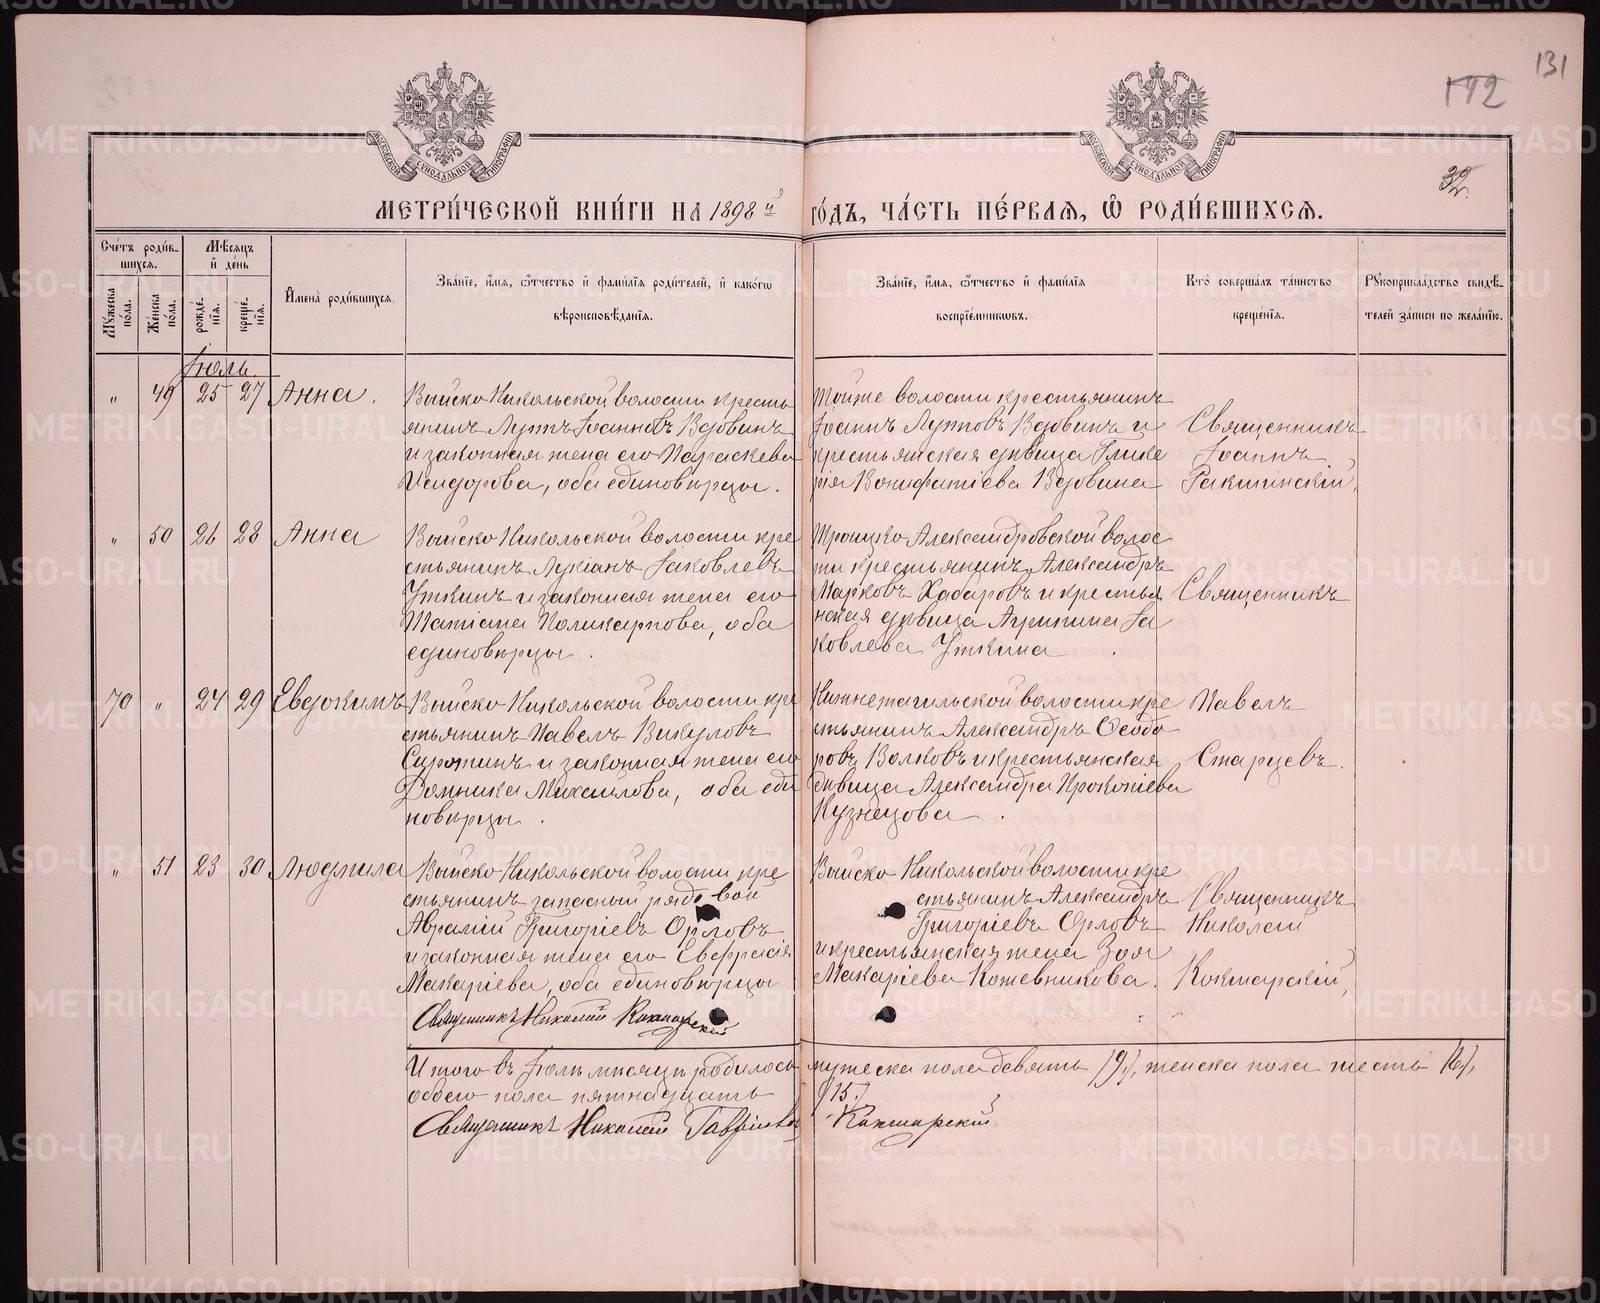 131
172
32.
МОСКОВСКОЙ СѴНОДАЛЬНОЙ ТИПОГРАФІИ
МОСКОВСКОЙ СѴНОДАЛЬНОЙ ТИПОГРАФІИ
МЕТРИ́ЧЕСКОЙ КНИ́ГИ НА 1898й ГО́ДЪ, ЧА́СТЬ ПЕ́РВАЯ, Ѡ РОДИ́ВШИХСЯ.
Сче́тъ роди́в-
шихся.
Му́жеска по́ла.
Же́нска по́ла.
Мѣ́сяцъ
и де́нь
рожде́-нїя.
креще́-нїя.
Имена̀ роди́вшихся.
Зва́нїе, и́мя, ѻ҆́тчество и фами́лїя роди́телей, и како́гѡ
вѣроисповѣ́данїя.
Зва́нїе, и́мя, ѻ҆́тчество и фами́лїя
воспрїе́мникѡвъ.
Кто̀ соверша́лъ та́инство
креще́нїя.
Рукоприкла́дство свидѣ́-
телей за́писи по жела́нїю.
Іюль.
" 49 25 27 Анна.
Выйско-Никольской волости кресть
янинъ Луппъ Іоанновъ Вдовинъ
и законная жена его Параскева
Исидорова, оба единовѣрцы.
Тойже волости крестьянинъ
Іоаннъ Лупповъ Вдовинъ и
крестьянская дѣвица Глике
рія Вонифатіева Вдовина
Священникъ
Іоаннъ
" 50 26 28 Анна
Выйско-Никольской волости кре
стьянинъ Лукіанъ Іаковлевъ
Уткинъ и законная жена его
Татіана Поликарпова, оба
единовѣрцы.
Троицко-Александровской волос
ти крестьянинъ Александръ
Марковъ Хабаровъ и крестья
нская дѣвица Агрипина Іа
ковлева Уткина.
Священникъ
70 " 24 29 Евдокимъ
Выйско-Никольской волости кре
стьянинъ Павелъ Викуловъ
Сиротинъ и законная жена его
Домника Михаилова, оба еди
новѣрцы.
Нижнетагильской волости кре
стьянинъ Александръ Ѳеодо
ровъ Волковъ и крестьянская
дѣвица Александра Прокопіева
Кузнецова.
Павелъ
Старцевъ.
" 51 23 30 Людмила
Выйско-Никольской волости кре
стьянинъ запасный рядовой
Аврамій Григоріевъ Орловъ
и законная жена его Евфрасія
Макаріева, оба единовѣрцы
Выйско-Никольской волости кре
стьянинъ Александръ
Григоріевъ Орловъ
и крестьянская жена Зоя
Макаріева Кожевникова.
Священникъ
Николай
Кокшарскій,
Священникъ Николай Кокшарскій
Итого въ Іюлѣ мѣсяцѣ родилось мужеска пола девять (9), женска пола шесть (6),
обоего пола пятнадцать (15.)
Священникъ Николай Гавріиловъ Кокшарскій
METRIKI.GASO-URAL.RU